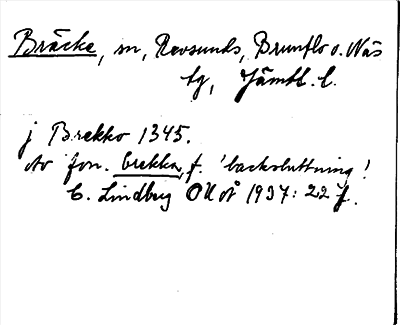 Bräcke, sn, Revsunds, Brunflo o. Näs
tg, Jämtl. l.
j Brekko 1345.
Av fvn. brekka, f. 'backsluttning'
C. Lindberg OUÅ 1937: 22 f.